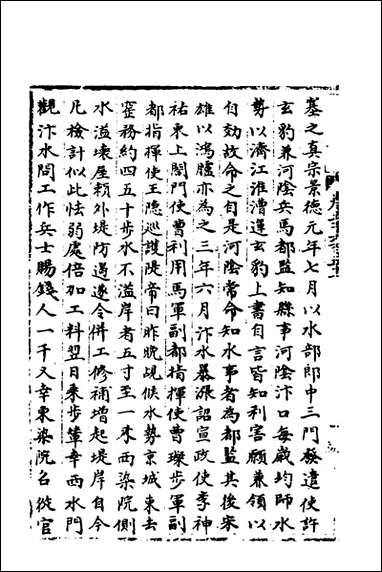 塞之真宗景德元年七月以水部郎中三門發遣使許
玄豹兼河陰兵馬都監知縣事河陰汴口每歲均師水
勢以濟江淮漕運玄豹上書自言皆知利害願兼領以
自効故命之自是河陰常命知水事者為都監其後宋
雄以鴻臚亦為之三年六月汴水暴漲詔宣政使李神
祐東上閤門使曹利用馬軍副都指揮使曹璨步軍副
都指揮使王隱巡護隄帝曰昨晚覘候水勢京城東去
窑務約四五十步水不溢岸者五寸至一米西染院側
水溢壞屋賴外堤防遏遂令併工修補增起堤岸自今
凡檢計似此怯弱處倍加工料翌日乘步輦幸西水門
觀汴水閱工作兵士賜錢人一千又幸東染院名從官